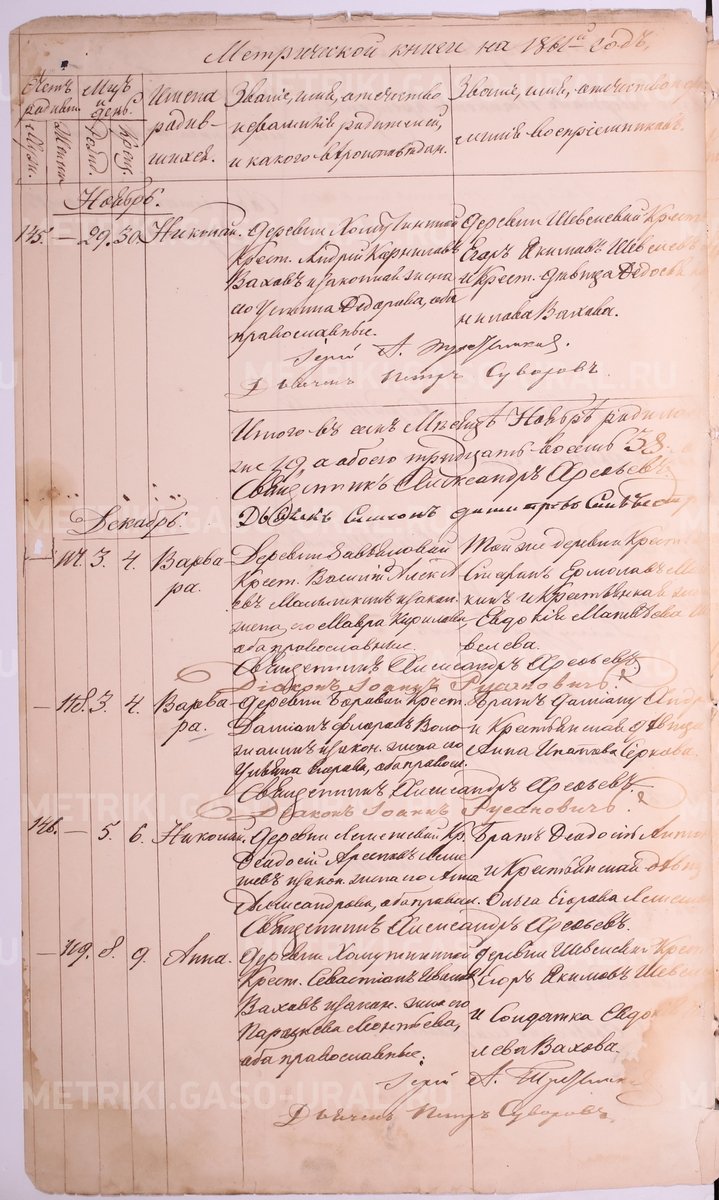 Метрической книги на 1861й годъ,
Счетъ родивш.
Мцъ и день.
Имена родив-шихся.
Званіе, имя, отчество
и фамилія родителей,
и какого вѣроисповѣдан.
Званіе, имя, отчество и
воспріемниковъ.
Мужс.
Женск.
Рожд.
Крещ.
Ноябрь.
145. — 29. 30. Николай.
Деревни Хомутинной
Крест. Андрей Корниловъ
Ваховъ и законная жена
его Устина Ѳедорова, оба
православные.
Деревни Шевелевой Крест
Егоръ Якимовъ Шевелевъ
и Крест. дѣвица Ѳедосья
нилова Вахова.
Іерей А.
Дьячекъ Петръ Суворовъ.
Итого въ семъ Мѣсяцѣ Ноябрѣ родилось
29, а обоего тридцать восемь 38.
Священникъ Александръ Арефьевъ
Дьячекъ Симеонъ
Декабрь.
— 117. 3. 4. Варва-
ра.
Деревни
Крест. Василій Алексѣ
евъ и закон.
жена его Мавра Кирилова
оба православные.
Той же деревни Крест
Ермолаевъ
кинъ и Крестьянская жена
Евдокія Матвѣева
велева.
Священникъ Александръ Арефьевъ
Діаконъ Іоаннъ Русановичъ.
— 118. 3. 4. Варва-
ра.
Деревни Боровой Крест.
Даміанъ Флоровъ Воло
и закон. жена его
Ульяна Егорова, оба правосл.
Братъ Даміану Андр
и Крестьянская дѣвица
Анна Ипатова Сѣркова.
Священникъ Александръ Арефьевъ
Діаконъ Іоаннъ Русановичъ.
146. — 5. 6. Николай.
Деревни Кр.
Ѳеодосій
и закон. жена его Анна
Александрова, оба правосл.
Братъ Ѳеодосію Антон
и Крестьянская дѣвица
Ольга Егорова
Священникъ Александръ Арефьевъ.
— 119. 8. 9. Анна.
Деревни Хомутинной
Крест. Севастіанъ Иванов
Ваховъ и закон. жена его
Параскева Леонтьева,
оба православные.
Деревни Шевелевой Крест
Егоръ Якимовъ Шевел
и Солдатка Евдо
лева Вахова.
Іерей А.
Дьячекъ Петръ Суворовъ.
METRIKI.GASO-URAL.RU